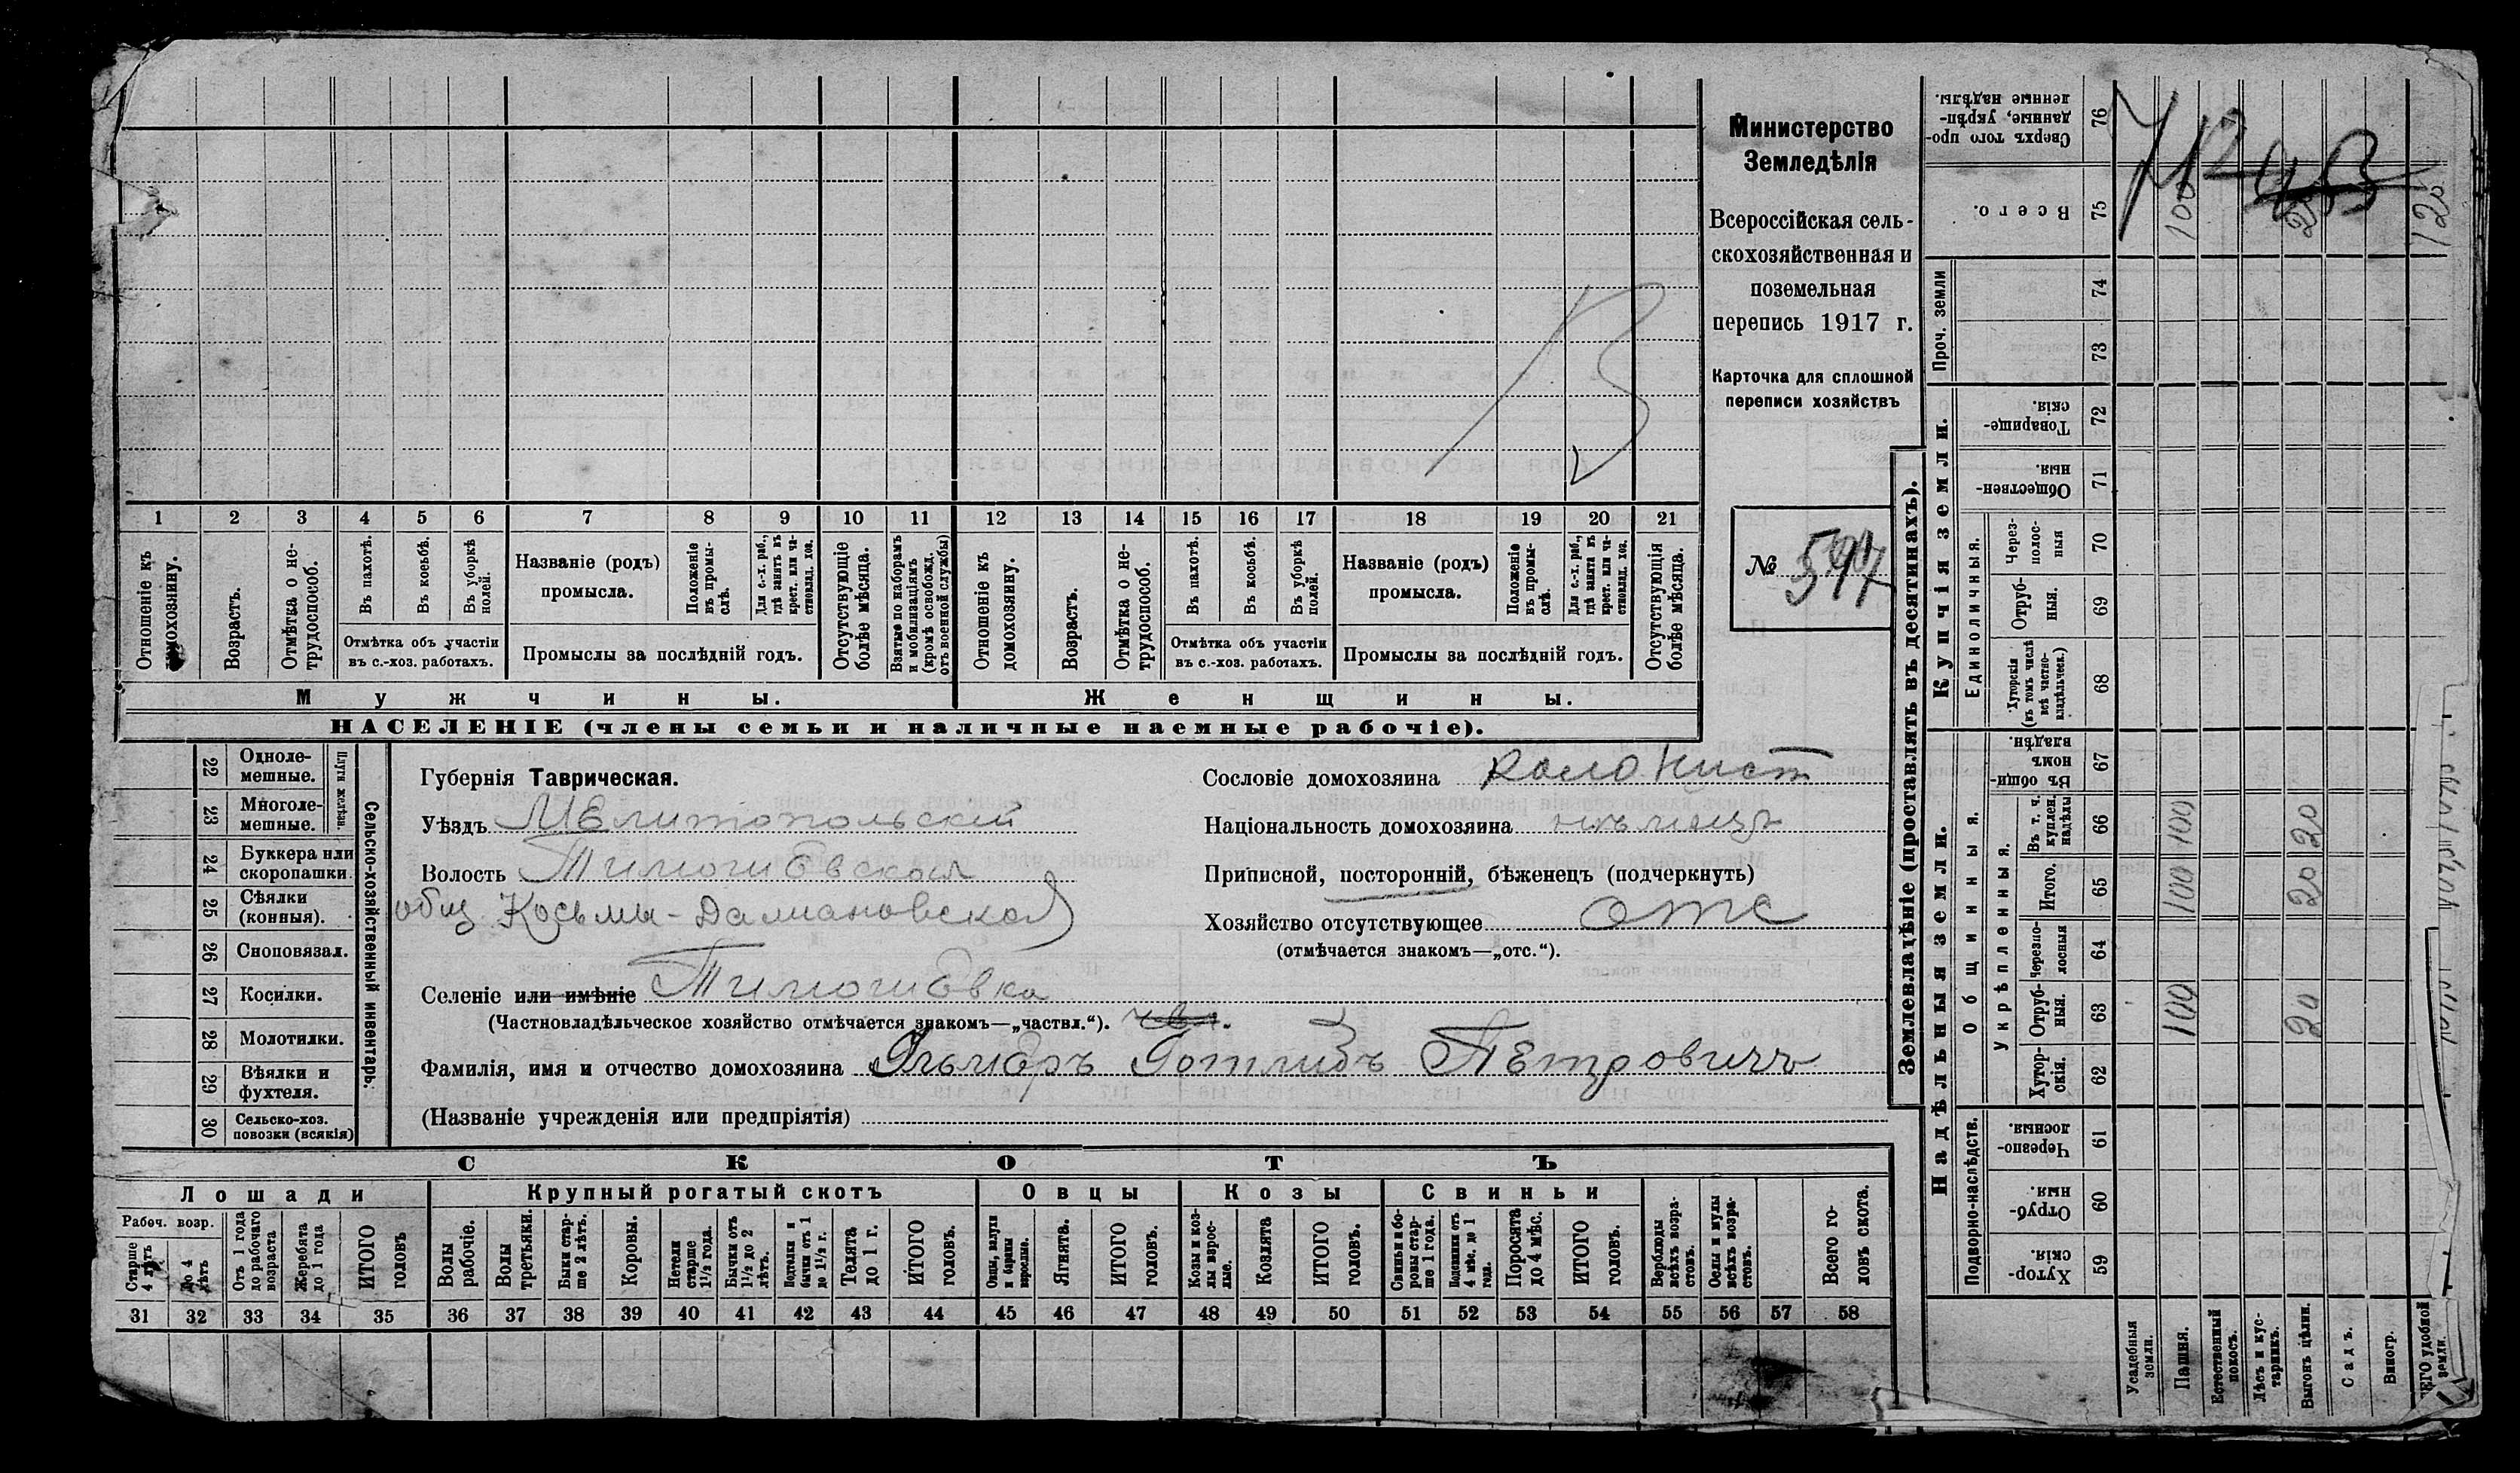 Министерство
Земледѣлія
Всероссійская сель-
скохозяйственная и
поземельная
перепись 1917 г.
Карточка для сплошной
переписи хозяйствъ
№
1 2 3 4 5 6 7 8 9 10 11 12 13 14 15 16 17 18 19 20 21
Отношеніе къ домохозяину.
Возрастъ.
Отмѣтка о не-
трудоспособ.
Въ пахотѣ.
Въ косьбѣ.
Въ уборкѣ
полей.
Отмѣтка объ участіи
въ с.-хоз. работахъ.
Названіе (родъ)
промысла.
Положеніе
въ промы-
слѣ.
Для с.-х. раб.,
гдѣ занятъ въ
крест. или ча-
стновлад. хоз.
Промыслы за послѣдній годъ.
Отсутствующіе
болѣе мѣсяца.
Взятые по наборамъ
и мобилизаціямъ
(кромѣ освобожд.
отъ военной службы)
Отношеніе къ
домохозяину.
Возрастъ.
Отмѣтка о не-
трудоспособ.
Въ пахотѣ.
Въ косьбѣ.
Въ уборкѣ
полей.
Отмѣтка объ участіи
въ с.-хоз. работахъ.
Названіе (родъ)
промысла.
Положеніе
въ промы-
слѣ.
Для с.-х. раб.,
гдѣ занята въ
крест. или ча-
стновлад. хоз.
Промыслы за послѣдній годъ.
Отсутствующія
болѣе мѣсяца.
Мужчины.
Женщины.
НАСЕЛЕНІЕ (члены семьи и наличные наемные рабочіе).
22 Одноле-
мешные.
23 Многоле-
мешные.
Плуги желѣзн.
24 Буккера или
скоропашки
25 Сѣялки
(конныя).
26 Сноповязал.
27 Косилки.
28 Молотилки.
29 Вѣялки и
фухтеля.
30 Сельско-хоз.
повозки (всякія)
Сельско-хозяйственный инвентарь.
Губернія Таврическая.
Уѣздъ Мелитопольскій
Волость Тимошевская
общ. Косьмы-Дамиановская
Селеніе или имѣніе Тимошевка
(Частновладѣльческое хозяйство отмѣчается знакомъ—„частвл.“).
Фамилія, имя и отчество домохозяина Готлибъ Петровичъ
(Названіе учрежденія или предпріятія)
Сословіе домохозяина колонист
Національность домохозяина нѣмецъ
Приписной, посторонній, бѣженецъ (подчеркнуть)
Хозяйство отсутствующее отс
(отмѣчается знакомъ—„отс.“).
СКОТЪ
Лошади
Крупный рогатый скотъ
Овцы
Козы
Свиньи
Рабоч. возр.
Старше
4 лѣтъ
До 4
лѣтъ
Отъ 1 года
до рабочаго
возраста
Жеребята
до 1 года
ИТОГО
головъ
Волы
рабочіе.
Волы
третьяки.
Быки стар-
ше 2 лѣтъ.
Коровы.
Нетели
старше
1½ года.
Бычки отъ
1½ до 2
лѣтъ.
Подтелки и
бычки отъ 1
до 1½ г.
Телята
до 1 г.
ИТОГО
головъ.
Овцы, валухи
и бараны
взрослые.
Ягнята.
ИТОГО
головъ.
Козы и коз-
лы взрос-
лые.
Козлята
ИТОГО
головъ.
Свиньи и бо-
ровы стар-
ше 1 года.
Подсвинки отъ
4 мѣс. до 1
года.
Поросята
до 4 мѣс.
ИТОГО
головъ.
Верблюды
всѣхъ возра-
стовъ.
Ослы и мулы
всѣхъ возра-
стовъ.
Всего го-
ловъ скота.
31 32 33 34 35 36 37 38 39 40 41 42 43 44 45 46 47 48 49 50 51 52 53 54 55 56 57 58
Землевладѣніе (проставлять въ десятинахъ).
Надѣльныя земли.
Купчія земли.
Проч. земли
Подворно-наслѣдств.
Общинныя.
Укрѣпленныя.
Единоличныя.
Хутор-
скія. 59
Отруб-
ныя. 60
Черезпо-
лосныя. 61
Хутор-
скія. 62
Отруб-
ныя. 63 100 20
Черезпо-
лосныя 64
Итого. 65 100 20
Въ т. ч.
куплен.
надѣлы 66 100 20
Въ общи-
номъ
владѣн. 67
Хуторскія
(въ томъ числѣ
всѣ частно-
владѣльческ.) 68
Отруб-
ныя. 69
Через-
полос-
ныя 70
Обществен-
ныя. 71
Товарище-
скія. 72
73
74
Всего. 75 100 120
Сверхъ того про-
данные, укрѣп-
ленные надѣлы. 76
Усадебныя
земли.
Пашня.
Естественный
покосъ.
Лѣсъ и кус-
тарникъ.
Выгонъ цѣлин.
Садъ.
Виногр.
удобной
земли.